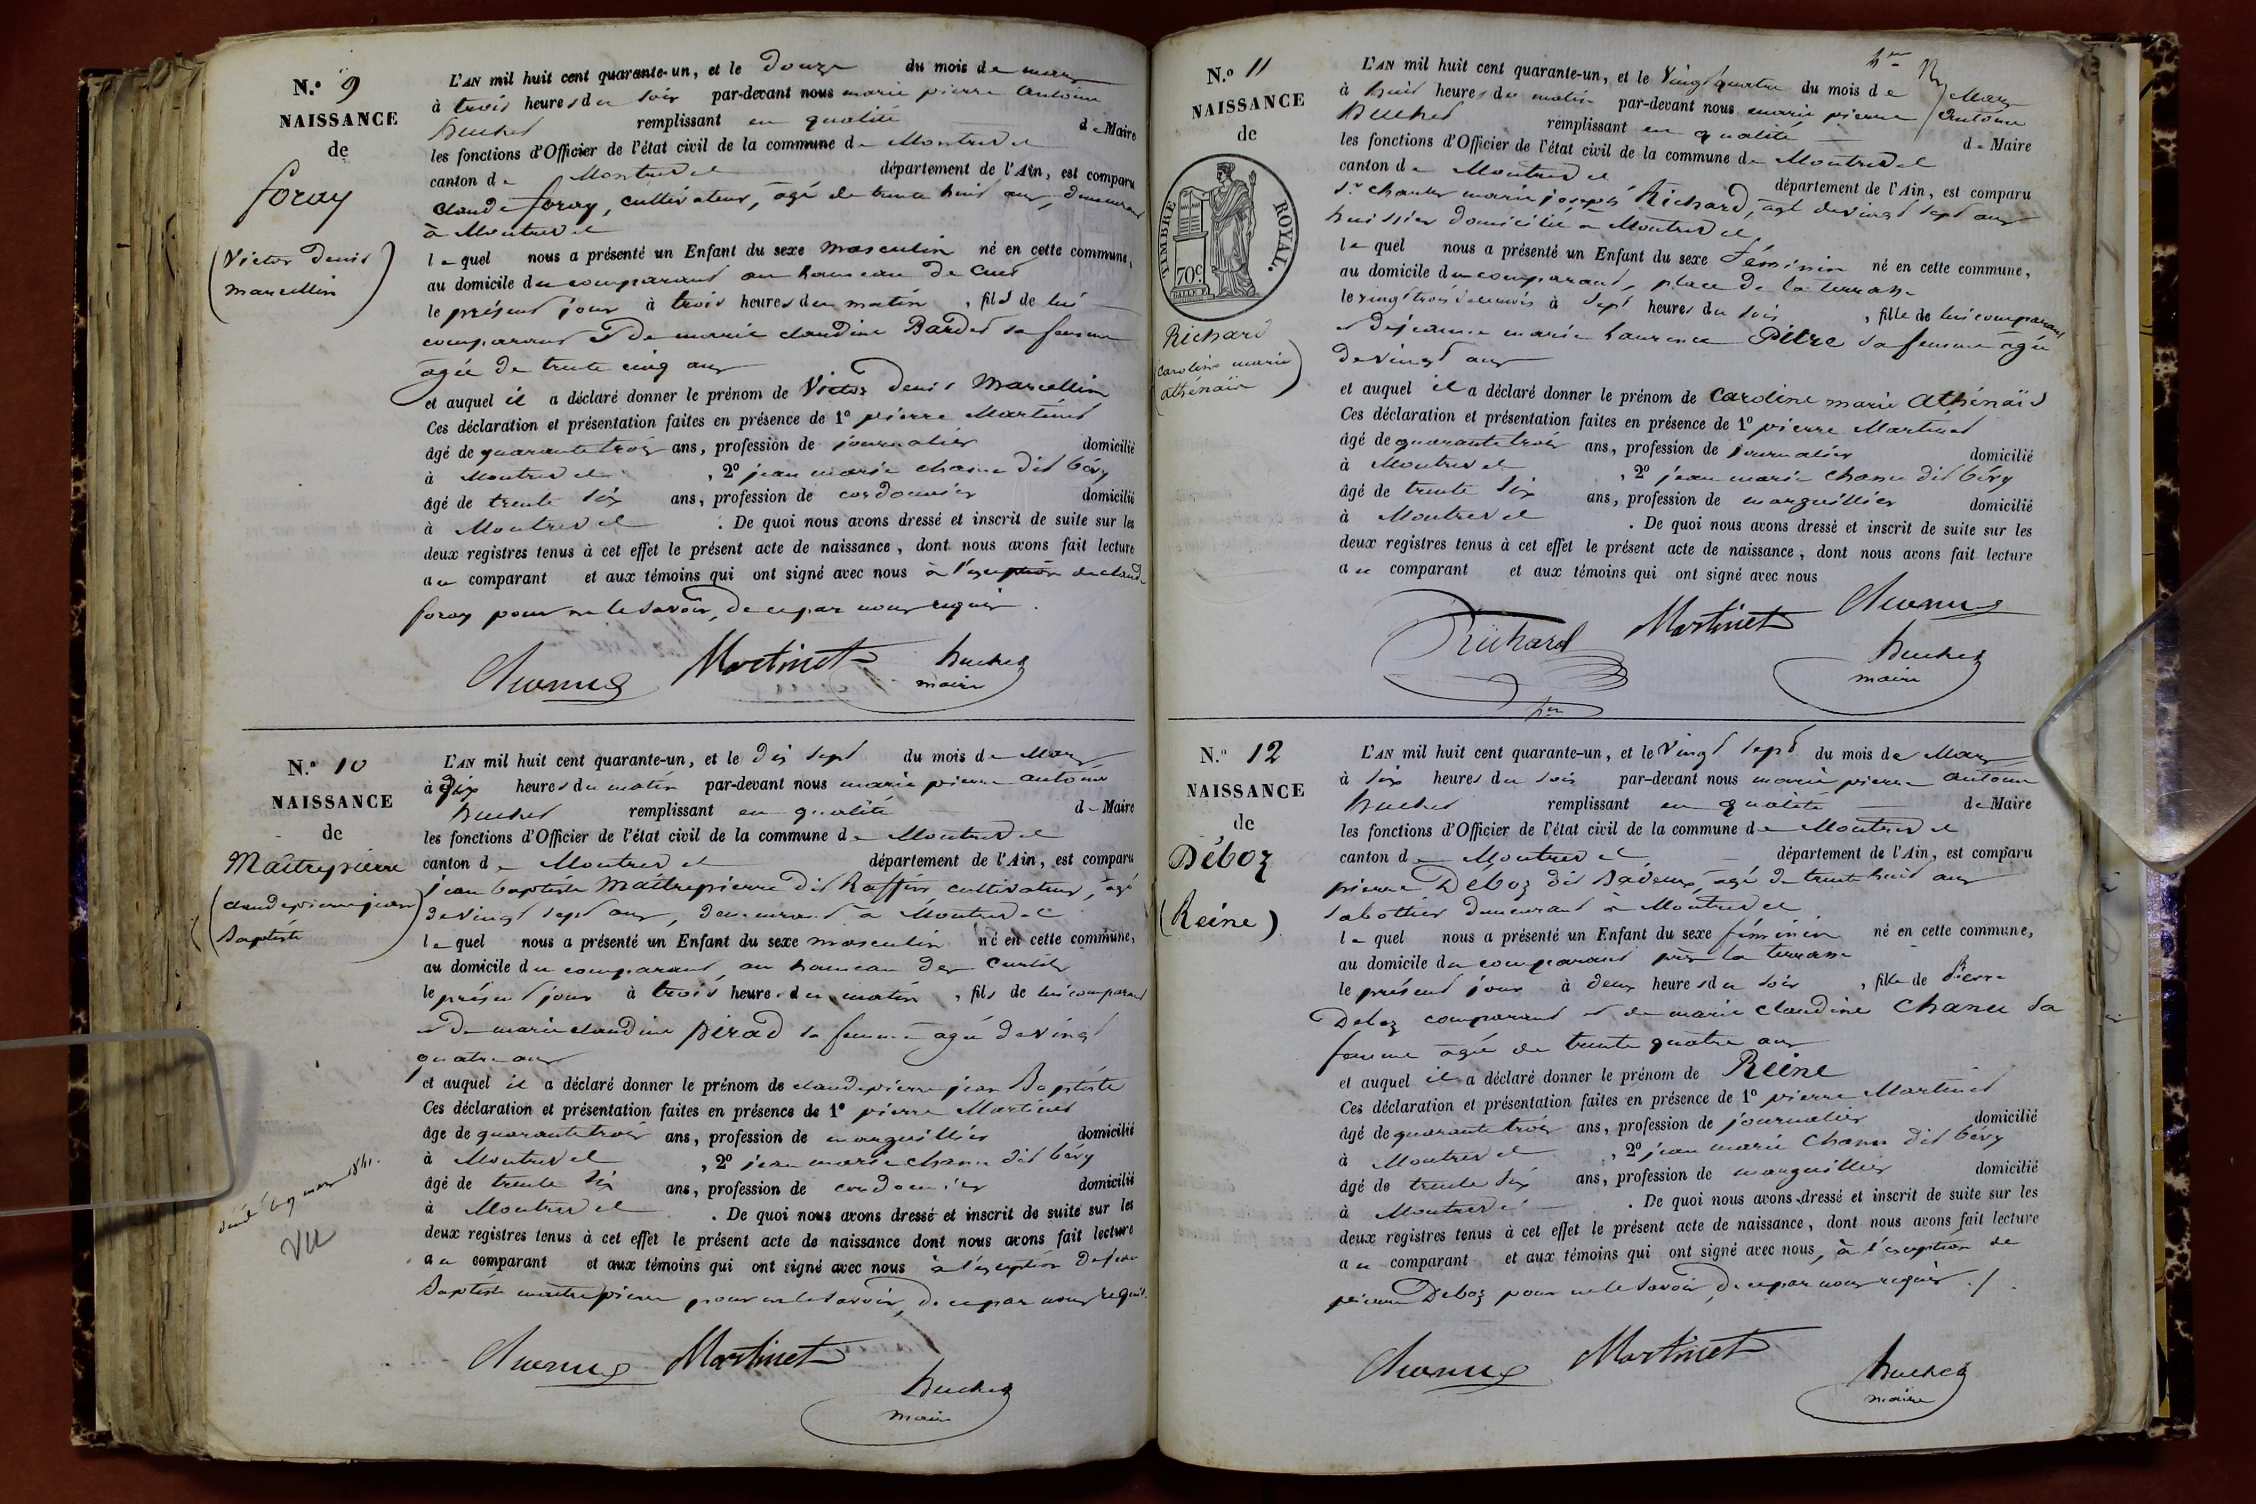 N.º 9
NAISSANCE
de
foray
(Victor Denis
marcellin)
L'AN mil huit cent quarante-un, et le douze du mois de mars
à trois heures du soir par-devant nous marie pierre antoine
huchet remplissant en qualité de Maire
les fonctions d'Officier de l'état civil de la commune de Montrevel
canton de Montrevel département de l'Ain, est comparu
claude foray, cultivateur, âgé de trente huit ans, demeurant
à Montrevel
lequel nous a présenté un Enfant du sexe masculin né en cette commune,
au domicile du comparant au hameau de Cuet
le présent jour à trois heures du matin, fils de lui
comparant & de marie claudine Bardet sa femme
agée de trente cinq ans
et auquel il a déclaré donner le prénom de Victor Denis Marcellin
Ces déclaration et présentation faites en présence de 1º pierre Martinet
âgé de quarante trois ans, profession de journalier domicilié
à Montrevel, 2º jean marie chanu dit bévy
âgé de trente six ans, profession de cordonnier domicilié
à Montrevel. De quoi nous avons dressé et inscrit de suite sur les
deux registres tenus à cet effet le présent acte de naissance, dont nous avons fait lecture
au comparant et aux témoins qui ont signé avec nous à l'exception de claude
foray pour ne le savoir, de ce par nous requis.
Chanu Martinet huchet
maire
N.º 10
NAISSANCE
de
Maîtrepierre
(claude pierre jean
Baptiste)
vu
L'AN mil huit cent quarante-un, et le dix sept du mois de Mars
à dix heures du matin par-devant nous marie pierre antoine
huchet remplissant en qualité de Maire
les fonctions d'Officier de l'état civil de la commune de Montrevel
canton de Montrevel département de l'Ain, est comparu
jean baptiste Maîtrepierre dit Raffin cultivateur, âgé
de vingt sept ans, demeurant à Montrevel
lequel nous a présenté un Enfant du sexe masculin né en cette commune,
au domicile du comparant, au hameau des Curtils
le présent jour à trois heures du matin, fils de lui comparant
et de marie claudine pirad sa femme agée de vingt
quatre ans
et auquel il a déclaré donner le prénom de claude pierre jean Baptiste
Ces déclaration et présentation faites en présence de 1º pierre Martinet
âge de quarante trois ans, profession de marguillier domicilié
à Montrevel, 2º jean marie chanu dit bévy
âgé de trente six ans, profession de cordonnier domicilié
à Montrevel. De quoi nous avons dressé et inscrit de suite sur les
deux registres tenus à cet effet le présent acte de naissance dont nous avons fait lecture
au comparant et aux témoins qui ont signé avec nous à l'exception de jean
Baptiste maitrepierre pour ne le savoir, de ce par nous requis.
Chanu Martinet huchet
maire
N.º 11
NAISSANCE
de
TIMBRE ROYAL.
70c.
Richard
(caroline marie
athénaïs)
L'AN mil huit cent quarante-un, et le Vingt quatre du mois de Mars
à huit heures du matin par-devant nous marie pierre antoine
huchet remplissant en qualité de Maire
les fonctions d'Officier de l'état civil de la commune de Montrevel
canton de Montrevel département de l'Ain, est comparu
Sr charles marie joseph Richard, âgé de vingt sept ans
huissier domicilié à Montrevel
lequel nous a présenté un Enfant du sexe féminin né en cette commune,
au domicile du comparant, place de la terrasse
le vingt trois à sept heures du soir, fille de lui comparant
et de jeanne marie laurence Pitre sa femme agée
de vingt ans
et auquel il a déclaré donner le prénom de Caroline marie Athénaïs
Ces déclaration et présentation faites en présence de 1º pierre Martinet
âgé de quarante trois ans, profession de journalier domicilié
à Montrevel, 2º jean marie chanu dit bévy
âgé de trente six ans, profession de marguillier domicilié
à Montrevel. De quoi nous avons dressé et inscrit de suite sur les
deux registres tenus à cet effet le présent acte de naissance, dont nous avons fait lecture
au comparant et aux témoins qui ont signé avec nous
Richard Martinet Chanu
huchet
maire
N.º 12
NAISSANCE
de
Déboz
(Reine)
L'AN mil huit cent quarante-un, et le Vingt sept du mois de Mars
à six heures du soir par-devant nous marie pierre antoine
huchet remplissant en qualité de Maire
les fonctions d'Officier de l'état civil de la commune de Montrevel
canton de Montrevel département de l'Ain, est comparu
pierre Deboz dit , âgé de trente huit ans
sabottier demeurant à Montrevel
lequel nous a présenté un Enfant du sexe féminin né en cette commune,
au domicile du comparant près la terrasse
le présent jour à deux heures du soir, fille de Pierre
Deboz comparant et de marie claudine Chanu sa
femme agée de trente quatre ans
et auquel il a déclaré donner le prénom de Reine
Ces déclaration et présentation faites en présence de 1º pierre Martinet
âgé de quarante trois ans, profession de journalier domicilié
à Montrevel, 2º jean marie chanu dit bévy
âgé de trente six ans, profession de marguillier domicilié
à Montrevel. De quoi nous avons dressé et inscrit de suite sur les
deux registres tenus à cet effet le présent acte de naissance, dont nous avons fait lecture
au comparant et aux témoins qui ont signé avec nous, à l'exception de
pierre Deboz pour ne le savoir, de ce par nous requis ./.
Chanu Martinet huchet
maire